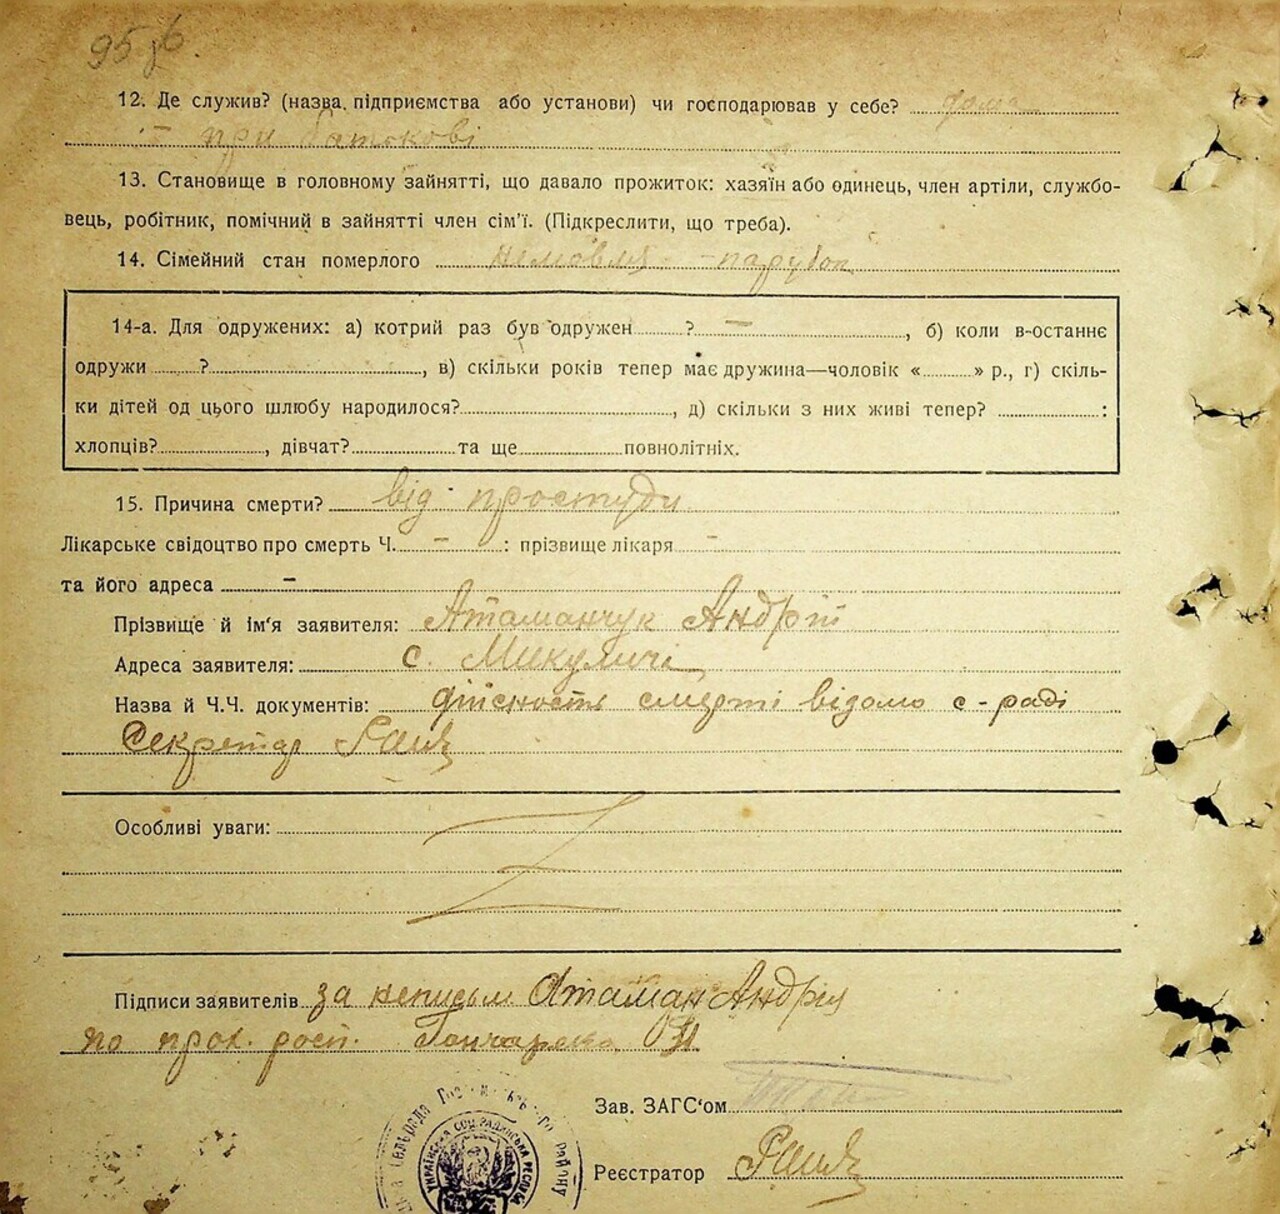 95
12. Де служив? (назва підприємства або установи) чи господарював у себе? дома
при батькові
13. Становище в головному зайнятті, що давало прожиток: хазяїн або одинець, член артіли, службо-
вець, робітник, помічний в зайнятті член сім'ї. (Підкреслити, що треба).
14. Сімейний стан померлого немовля - парубок
14-а. Для одружених: а) котрий раз був одружен ? —, б) коли в-останнє
одружи ?, в) скільки років тепер має дружина—чоловік « » р., г) скіль-
ки дітей од цього шлюбу народилося?, д) скільки з них живі тепер? :
хлопців?, дівчат? та ще повнолітніх.
15. Причина смерти? від простуди
Лікарське свідоцтво про смерть Ч. - : прізвище лікаря -
та його адреса -
Прізвище й ім'я заявителя: Атаманчук Андрій
Адреса заявителя: с. Микуличі
Назва й Ч.Ч. документів: дійсность смерті відомо с-раді
Секретар
Особливі уваги:
Підписи заявителів за неписьм Атаман Андрія
по прох. росп. Гончаренко
Зав. ЗАГС'ом
Реєстратор
сельрада району
УКРАЇНСЬКА СОЦ. РАДЯНСЬКА РЕСПУБ